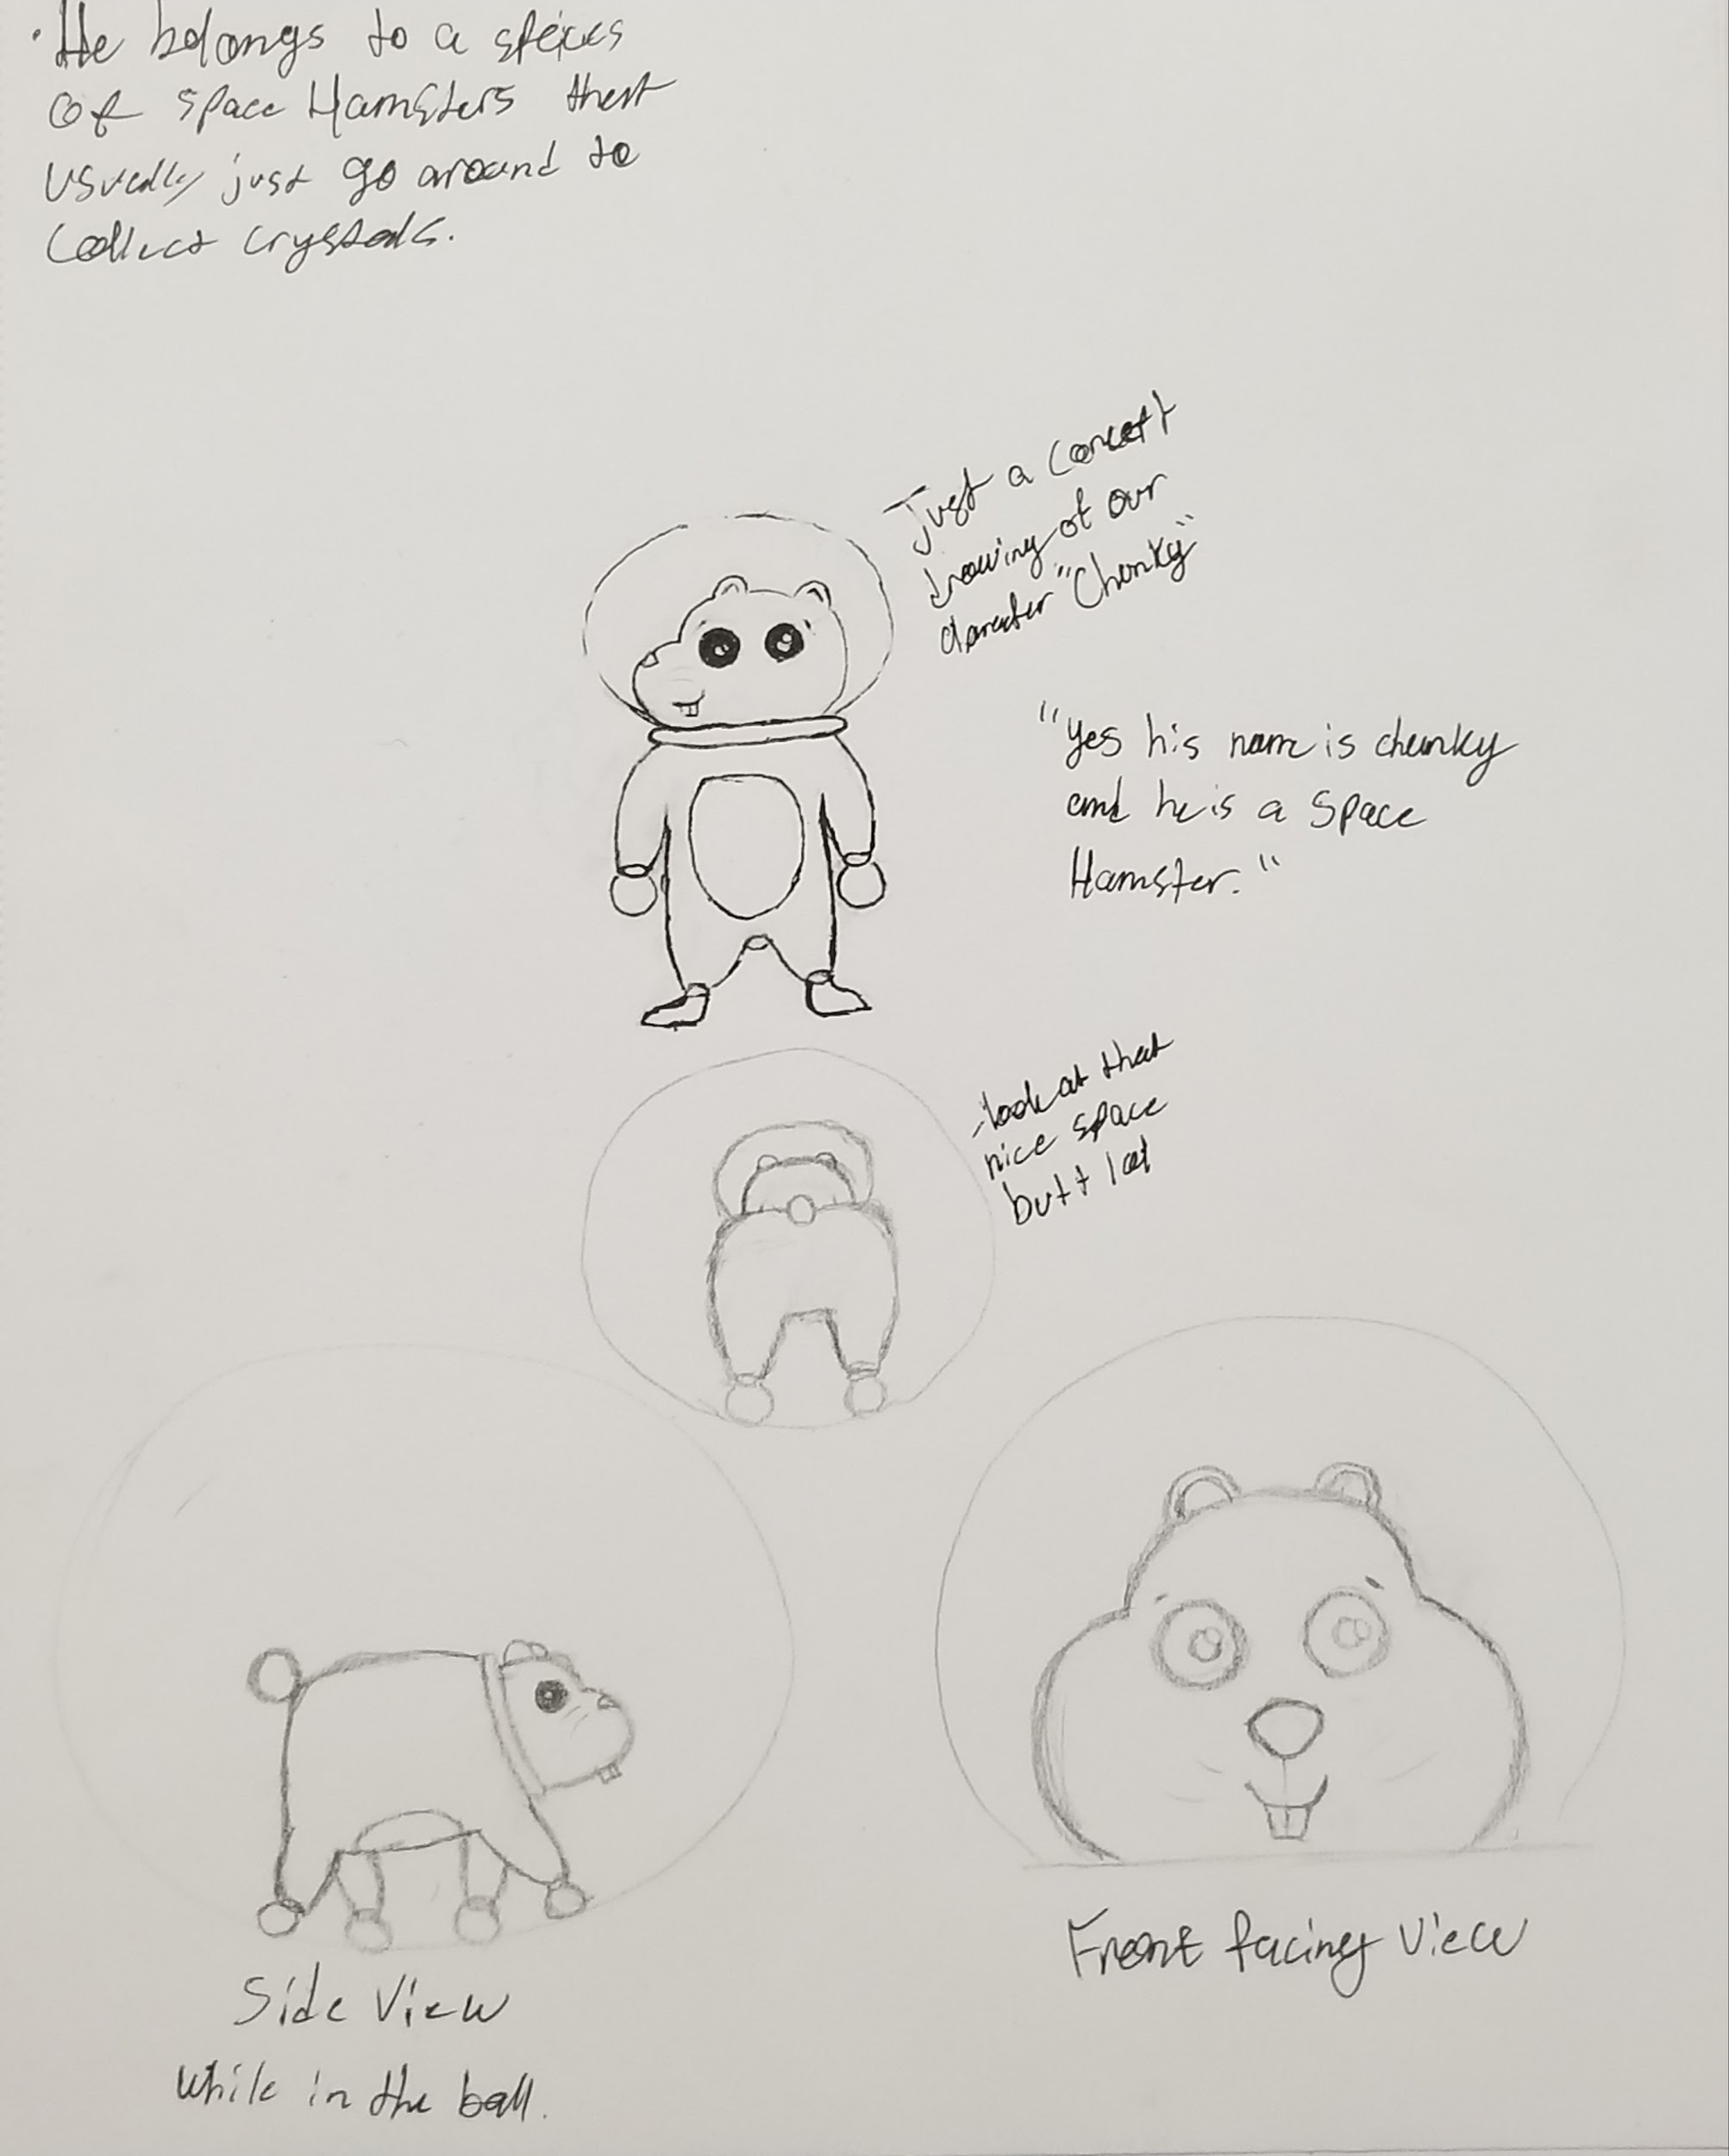 • He belongs to a species
of space Hamsters that
usually just go around to
collect crystals.
Just a concept
drawing of our
character "Chunky"
"yes his name is chunky
and he is a space
Hamster."
-look at that
nice space
butt lol
Side View
While in the ball.
Front facing view